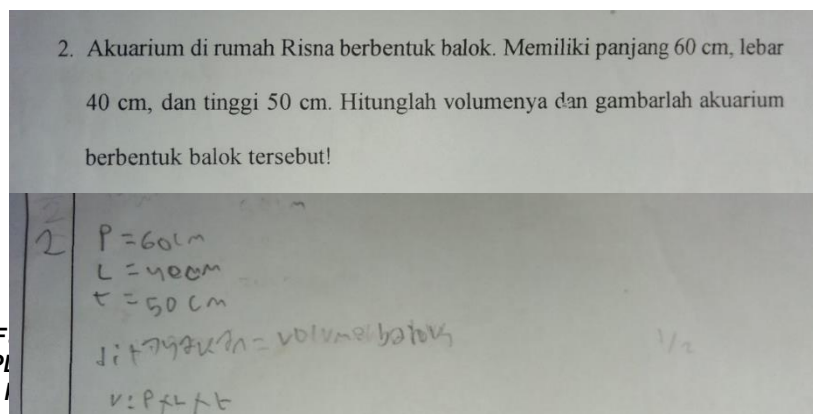 2. Akuarium di rumah Risna berbentuk balok. Memiliki panjang 60 cm, lebar
40 cm, dan tinggi 50 cm. Hitunglah volumenya dan gambarlah akuarium
berbentuk balok tersebut!
2 P = 60 cm
L = 40 cm
t = 50 cm
ditanyakan = volume balok
1/2
V: P x L x t